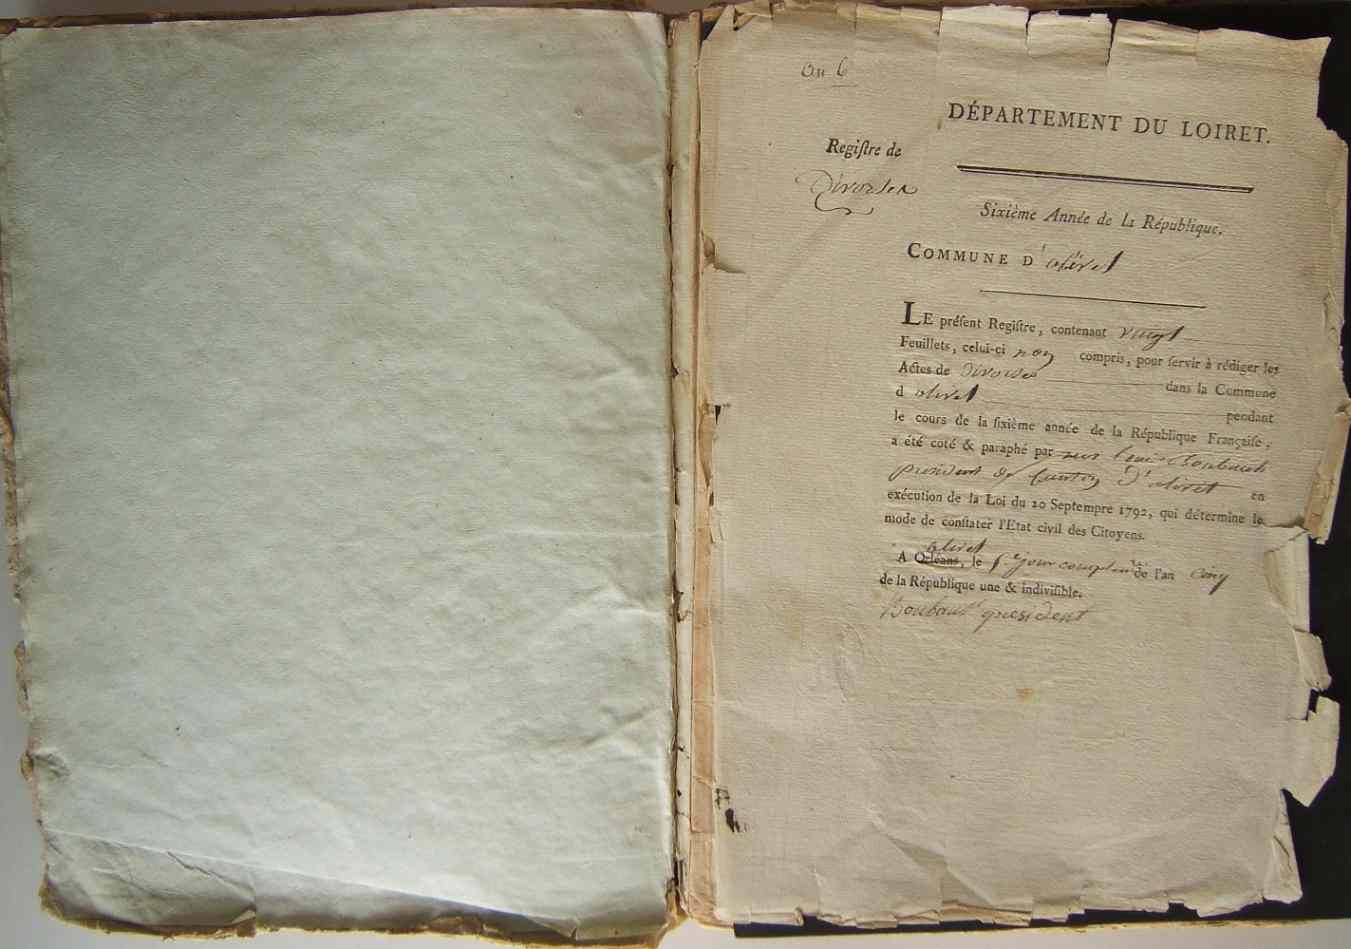 an 6
DÉPARTEMENT DU LOIRET.
Regiſtre de
Divorses
Sixième Année de la République.
COMMUNE D'olivet
LE préſent Regiſtre, contenant vingt
Feuillets, celui-ci non compris, pour ſervir à rédiger les
Actes de divorses dans la Commune
d olivet pendant
le cours de la ſixième année de la République Françaiſe,
a été coté & paraphé par
président du canton d'olivet en
exécution de la Loi du 20 Septembre 1792, qui détermine le
mode de conſtater l'Etat civil des Citoyens.
olivet
A Orléans, le jour complem.re de l'an cinq
de la République une & indiviſible.
president